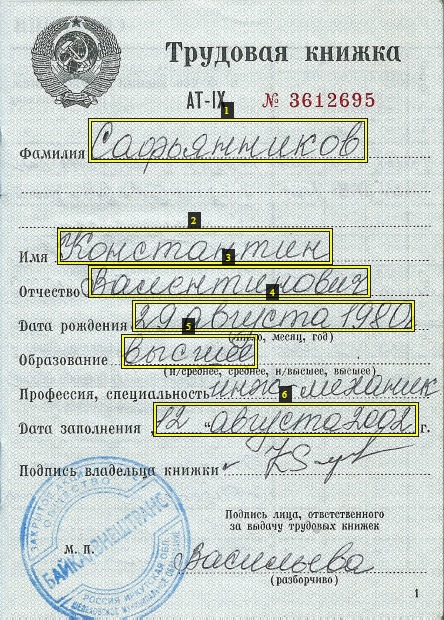 Трудовая книжка
АТ-IX № 3612695
1
Фамилия Сафьянников
2
Имя Константин
3
Отчество Валентинович
4
Дата рождения 29 августа 1980
5 (число, месяц, год)
Образование высшее
(н/среднее, среднее, н/высшее, высшее)
Профессия, специальность инж-механик
6
Дата заполнения „12 “ августа 2002 г.
Подпись владельца книжки
Подпись лица, ответственного
за выдачу трудовых книжек
М. П.
Васильева
(разборчиво)
1
ЗАКРЫТОЕ АКЦИОНЕРНОЕ ОБЩЕСТВО
БАЙКАЛВНЕШТРАНС
РОССИЯ ИРКУТСКАЯ ОБЛ.